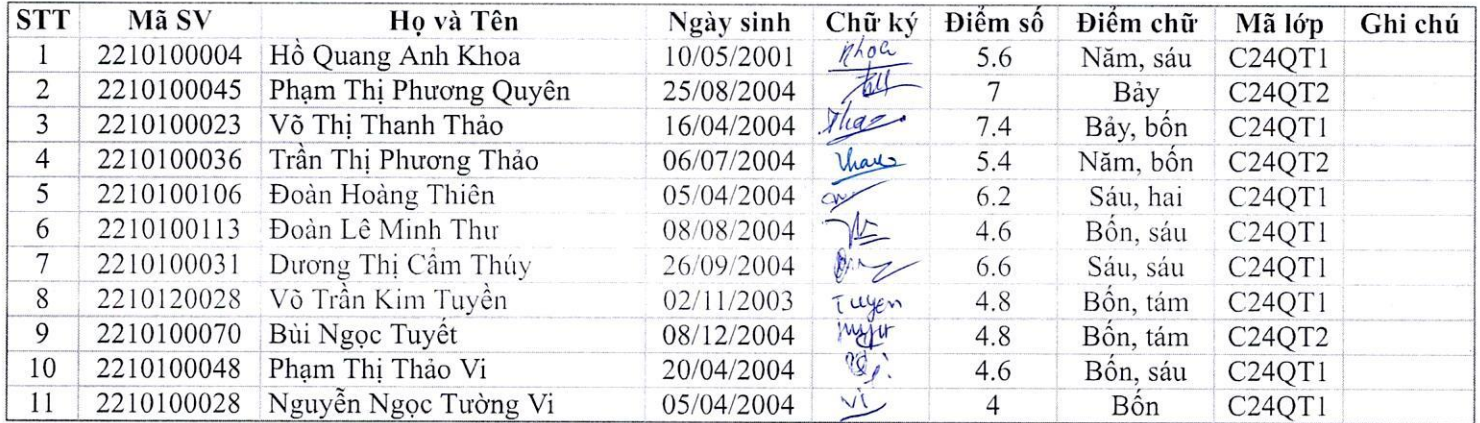 STT Mã SV Họ và Tên Ngày sinh Chữ ký Điểm số Điểm chữ Mã lớp Ghi chú
1 2210100004 Hồ Quang Anh Khoa 10/05/2001 Khoa 5.6 Năm, sáu C24QT1
2 2210100045 Phạm Thị Phương Quyên 25/08/2004 7 Bảy C24QT2
3 2210100023 Võ Thị Thanh Thảo 16/04/2004 Thao 7.4 Bảy, bốn C24QT1
4 2210100036 Trần Thị Phương Thảo 06/07/2004 Thao 5.4 Năm, bốn C24QT2
5 2210100106 Đoàn Hoàng Thiên 05/04/2004 6.2 Sáu, hai C24QT1
6 2210100113 Đoàn Lê Minh Thư 08/08/2004 4.6 Bốn, sáu C24QT1
7 2210100031 Dương Thị Cẩm Thúy 26/09/2004 6.6 Sáu, sáu C24QT1
8 2210120028 Võ Trần Kim Tuyền 02/11/2003 Tuyen 4.8 Bốn, tám C24QT1
9 2210100070 Bùi Ngọc Tuyết 08/12/2004 4.8 Bốn, tám C24QT2
10 2210100048 Phạm Thị Thảo Vi 20/04/2004 4.6 Bốn, sáu C24QT1
11 2210100028 Nguyễn Ngọc Tường Vi 05/04/2004 Vi 4 Bốn C24QT1